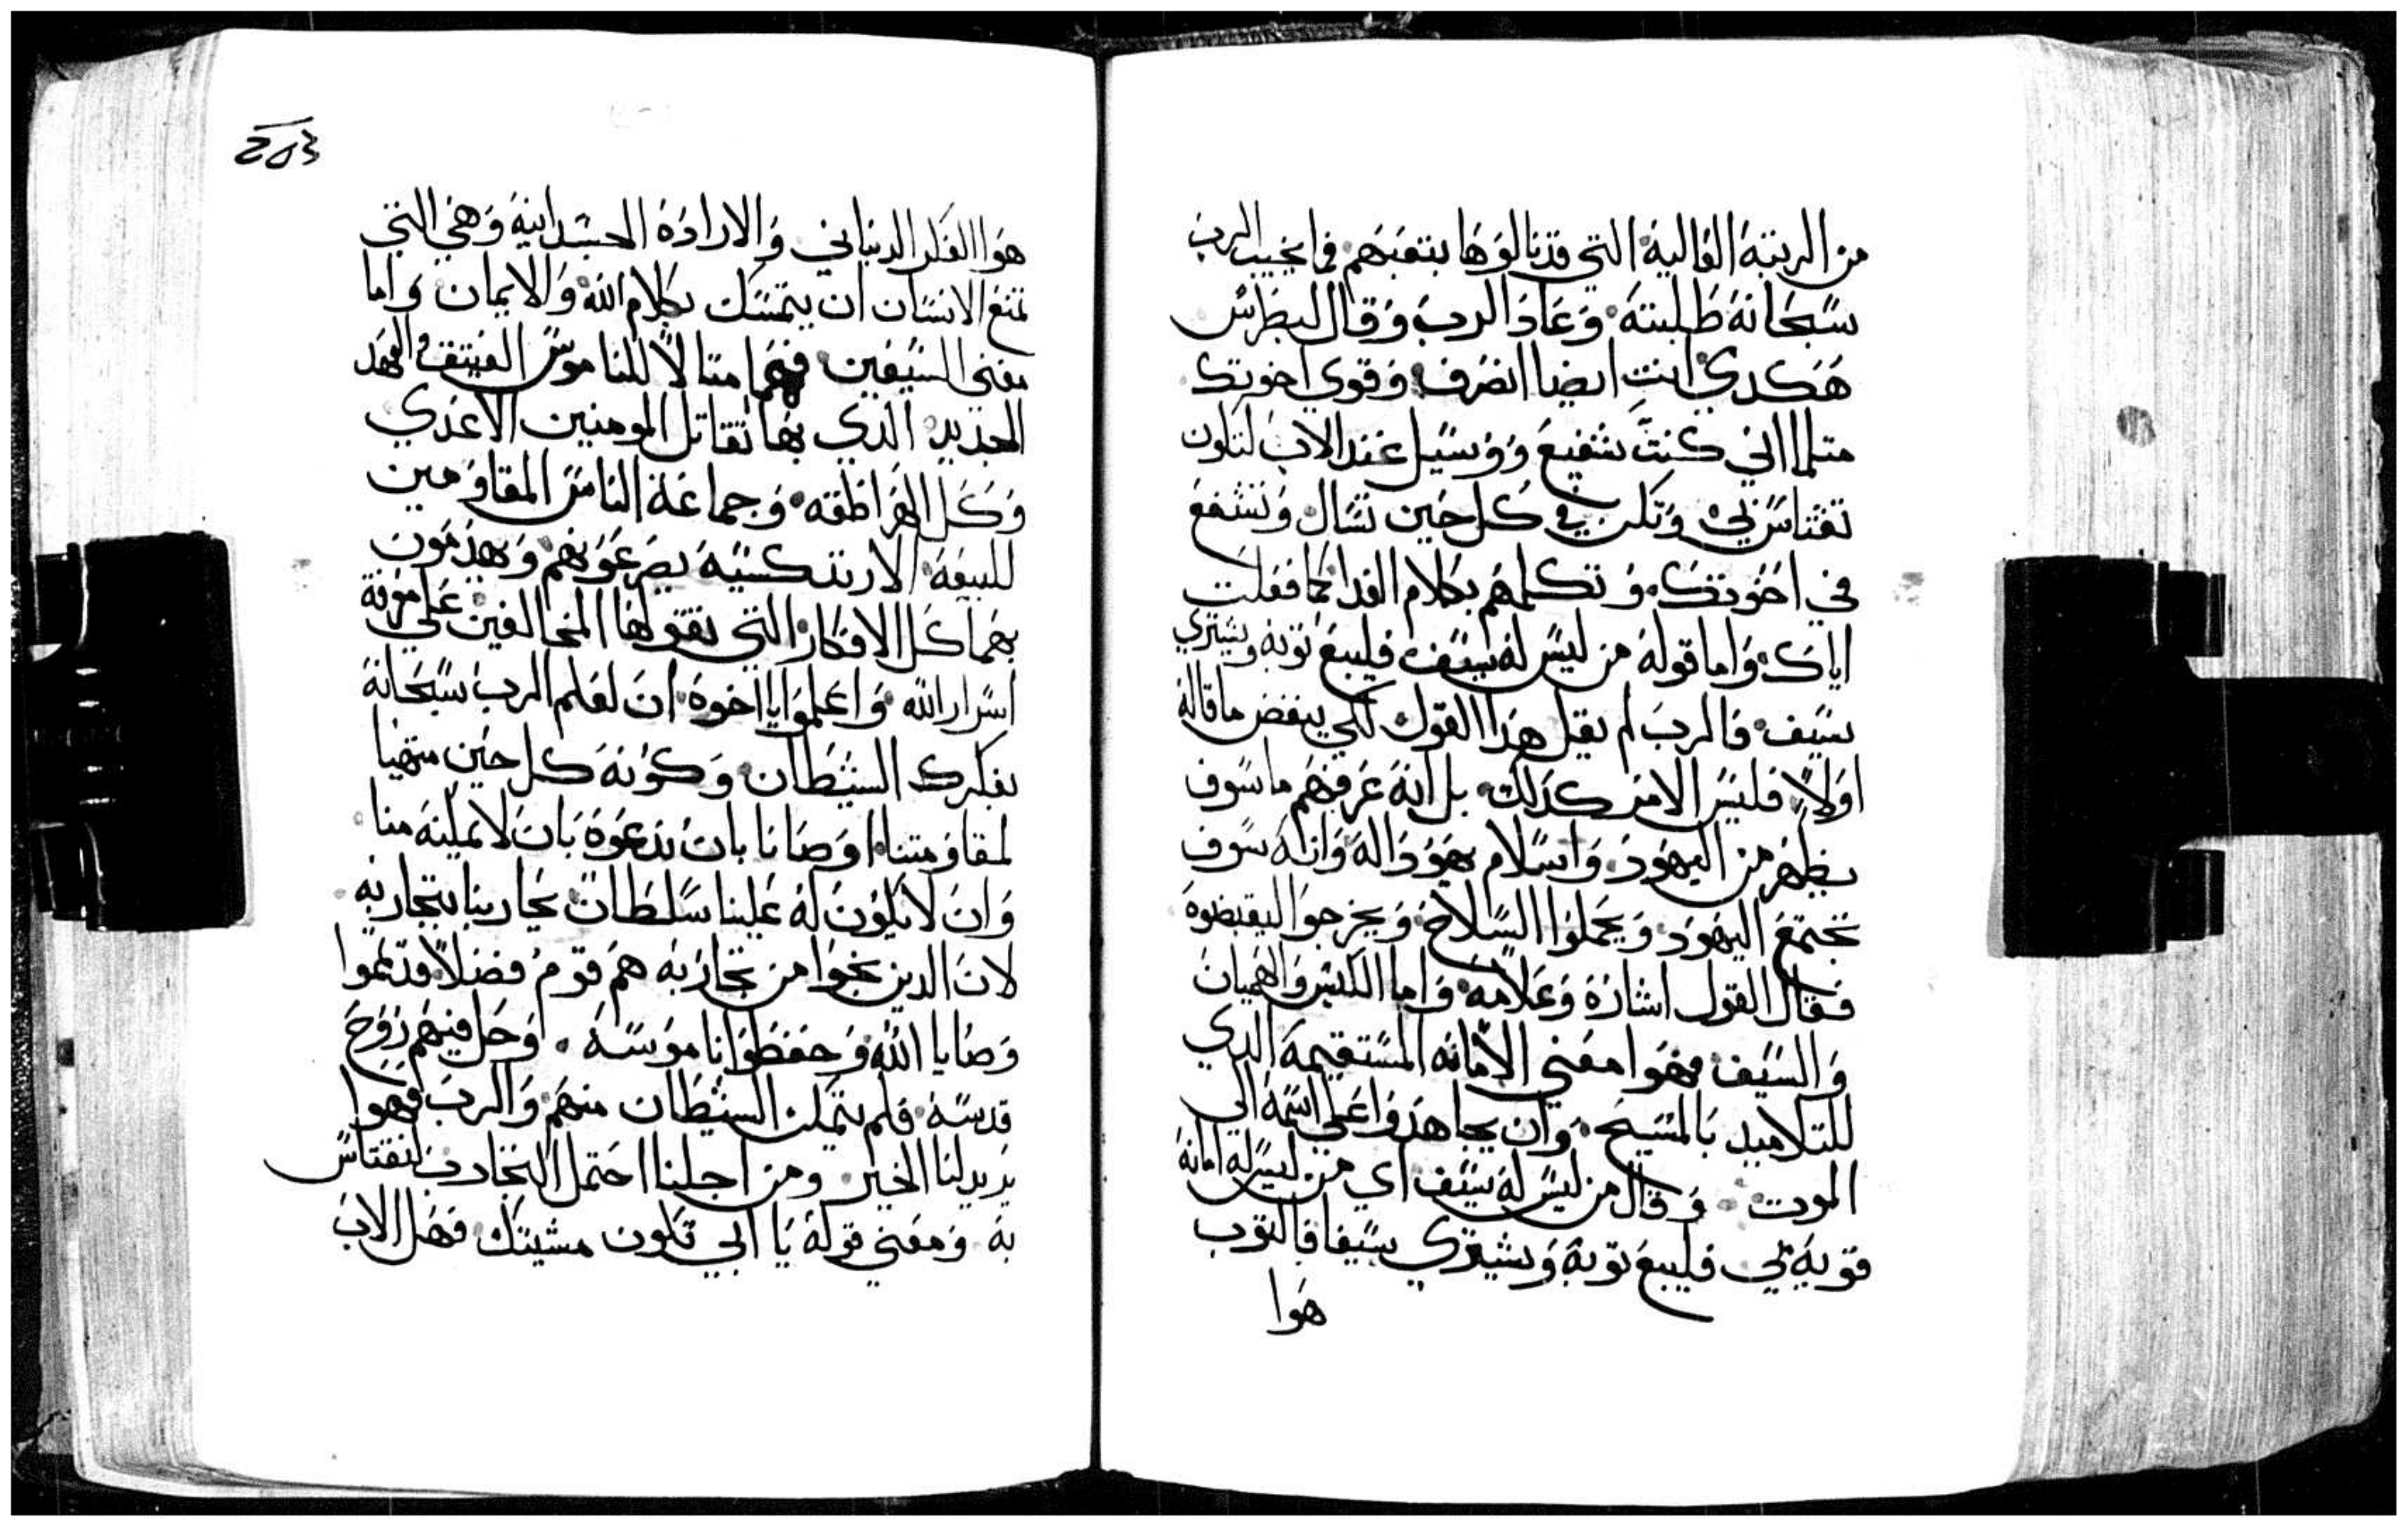 من الرتبة العالية التي قد نالوها بتعبهم فما يخيب الرب
سبحانه طلبته وعاد الرب وقال لبطرس
هكدي انت ايضا انصرف وقوي اخوتك
متلما اني كنت شفيع ووسيل عند الاب لتكون
تقتاس بي وتكن في كل حين تسال وتشفع
في اخوتك وتكلمهم بكلام الفدا كما فعلت
اياك واما قوله من ليس له سيف فليبع توبه ويشتري
سيف فالرب لم يقل هدا القول لكي ينقض ما قاله
اولاً فليس الامر كدلك بل انه عرفهم ما سوف
يظهر من اليهود واسلام يهودا له وانه سوف
تجتمع اليهود ويحملوا السلاح ويخرجوا ليقبضوه
فقال القول اشارة وعلامه واما الكيس والهميان
والسيف فهوا معني الامانه المستقيمة الدي
للتلاميد بالمسيح وان يجاهدوا علي اسمه الي
الموت وقال من ليس له سيف اي من ليس له امانة
قويه بي فليبع توبه ويشتري سيفا فالتوب
هوا
203
هوا الفكر الدنياني والارادة الجسدانية وهي التي
تمنع الانسان ان يتمسك بكلام الله والايمان واما
معني السيفين فهما متالاً للناموس العتيق والعهد
الجديد الدي بها تقاتل المومنين الاعدي
وكل الهراطقه وجماعة الناس المقاومين
للبيعة الارتدكسية يصرعونهم ويهدمون
بهما كل الافكار التي يقولها المخالفين علي معرفة
اسرار الله واعلموا يا اخوة ان لعلم الرب سبحانه
بفكرك الشيطان وكونه كل حين متهيا
لمقاومتنا اوصانا بان ندعوه بان لا يمكنه منا
وان لا يكون له علينا سلطان يحاربنا بتجاربه
لان الدين نجوا من تجاربه هم قوم فضلا قد تمموا
وصايا الله وحفظوا ناموسه وحل فيهم روح
قدسه فلم يتمكن الشيطان منهم والرب فهوا
يريد لنا الخير ومن اجلنا احتمل التجارب لنقتاس
به ومعني قوله يا ابي تكون مشيتك فهل الاب